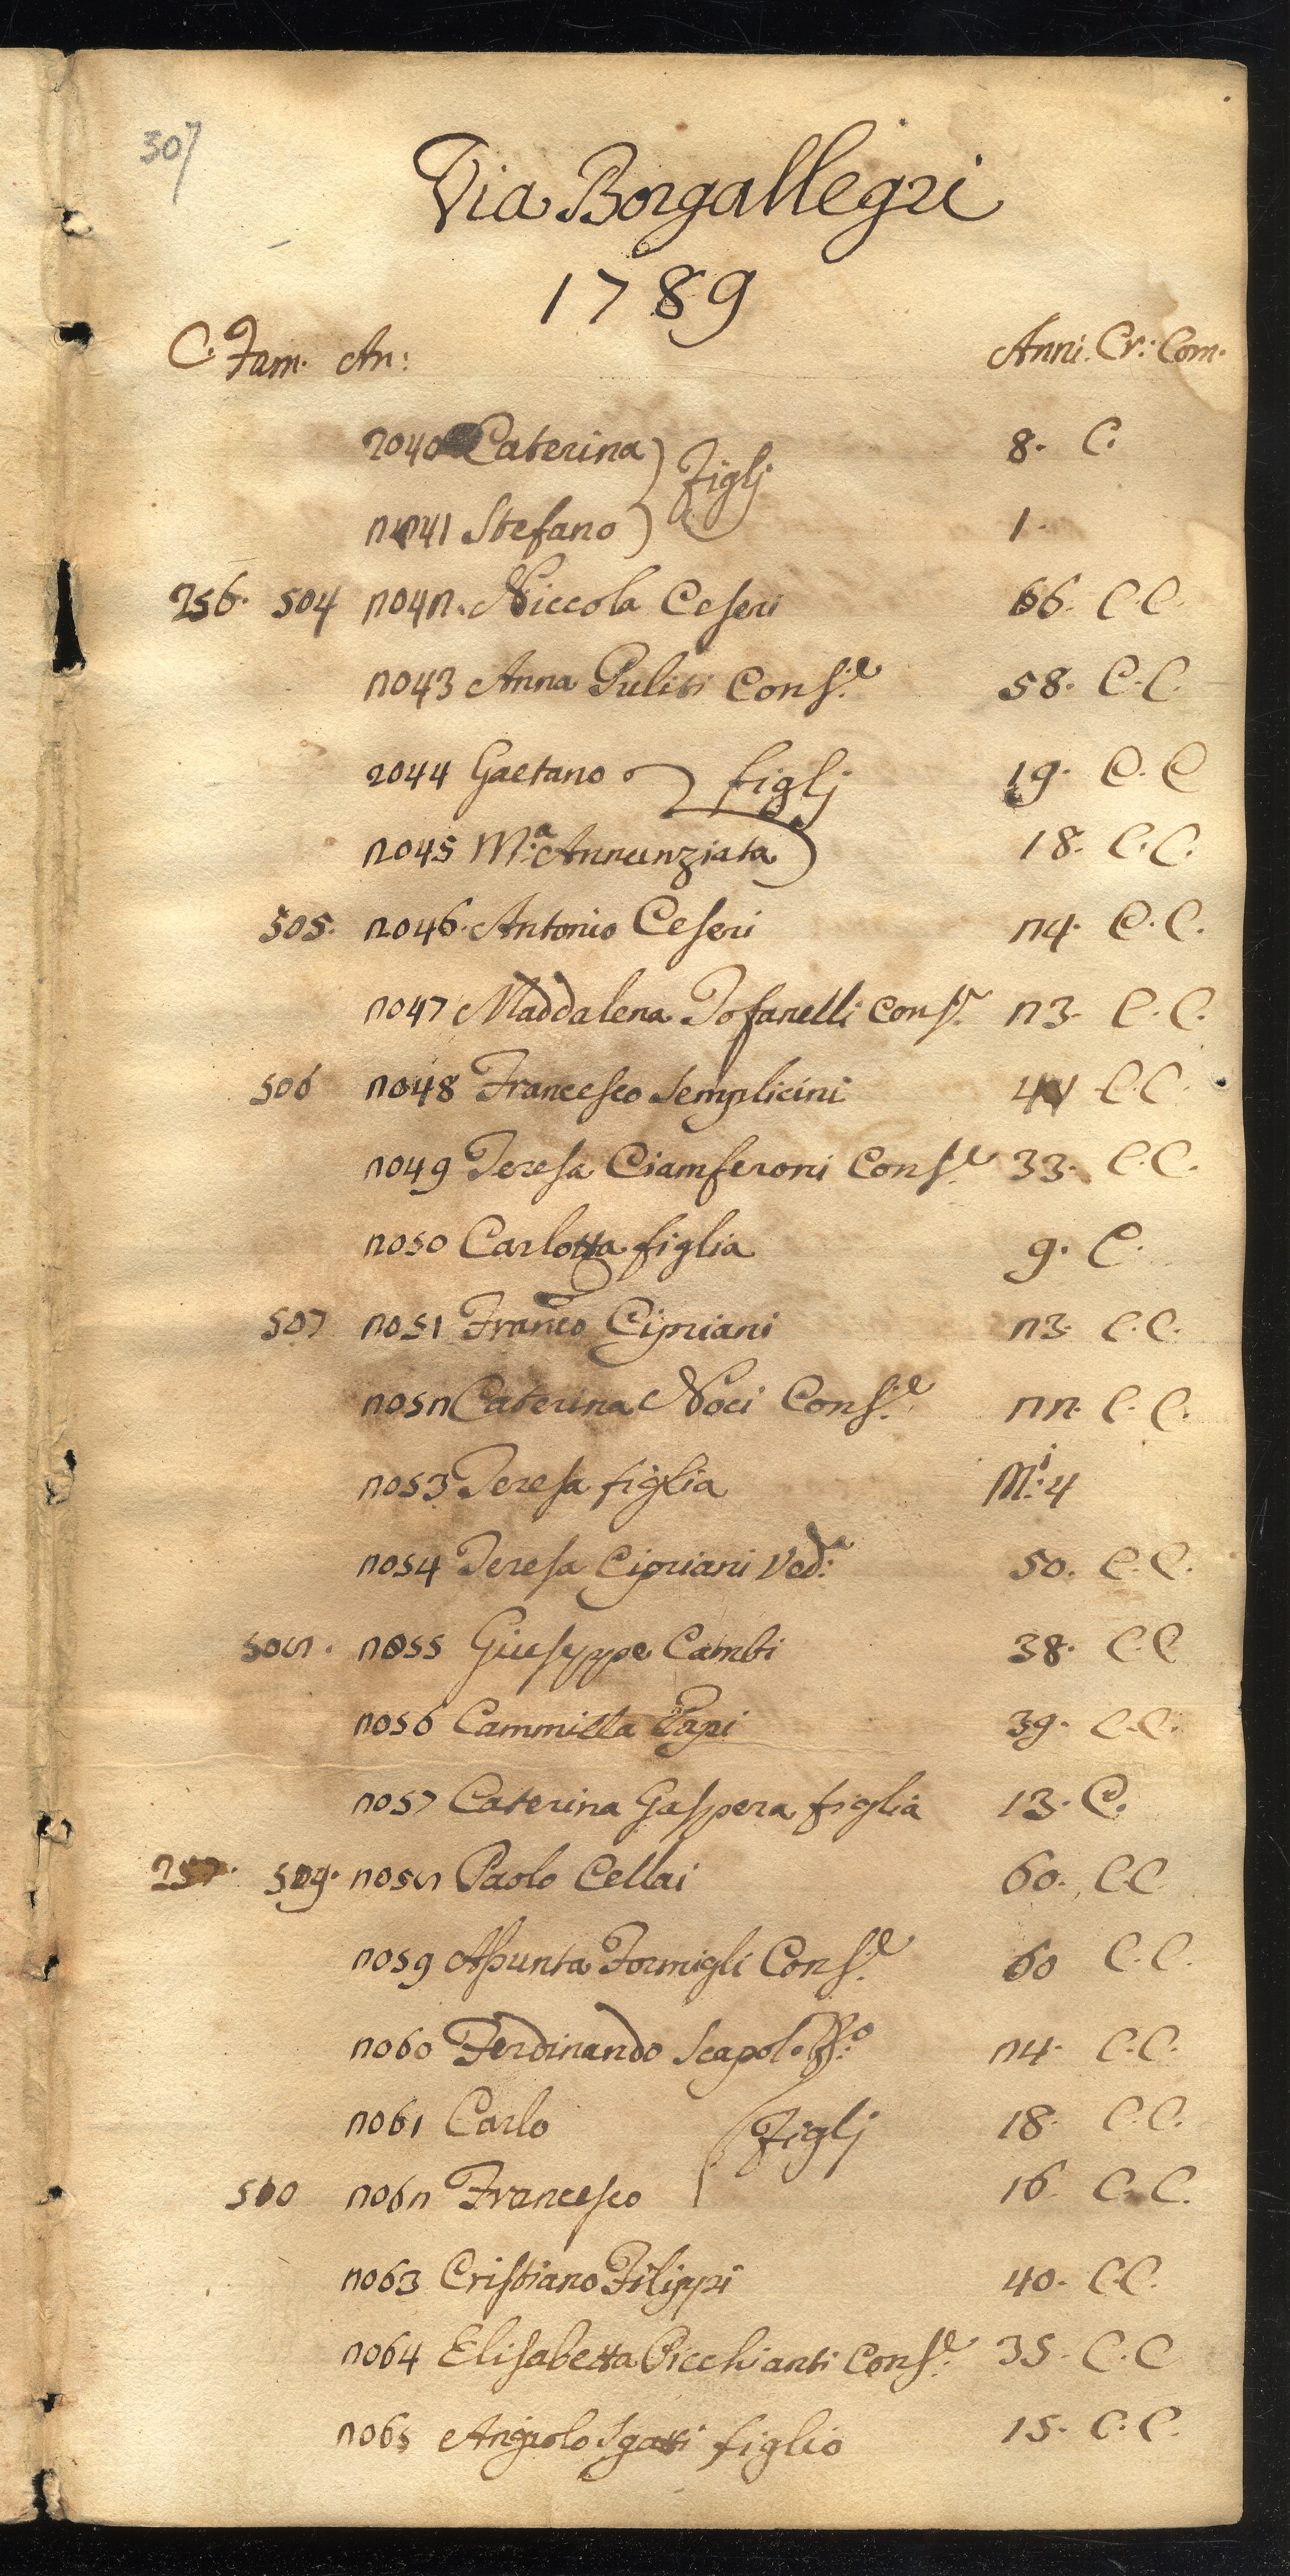 307
Via Borgallegri
1789
C. Fam. An: Anni. Cr: Com.
2040 Caterina 8. C.
figlj
2041 Stefano 1.
256. 504 2042. Niccola Ceseri 66. C. C.
2043 Anna Puliti Cons.e 58. C. C.
2044 Gaetano figlj 19. C. C
2045 M.a Annunziata 18. C. C.
505. 2046. Antonio Ceseri 24. C. C.
2047 Maddalena Tofanelli Cons.e 23. C. C.
506 2048 Francesco Semplicini C. C.
2049 Teresa Ciamferoni Cons.e 33. C. C.
2050 Carlotta figlia 9. C.
507 2051 Franco Cipriani 23. C. C.
2052 Caterina Noci Cons.e 22. C. C.
2053 Teresa figlia M.i 4
2054 Teresa Cipriani Ved.a 50. C. C.
508. 2055 Giuseppe Cambi 38. C. C
2056 Cammilla Papi 39. C. C.
2057 Caterina Gaspera figlia 13. C.
257. 509. 2058 Paolo Cellai 60. C. C
2059 Assunta Formigli Cons.e 60 C. C.
2060 Ferdinando Scapolo 24. C. C.
2061 Carlo figlj 18. C. C.
510 2062 Francesco 16. C. C.
2063 Cristiano Filippi 40. C. C.
2064 Elisabetta Picchianti Cons.e 35. C. C
2065 Angiolo figlio 15. C. C.